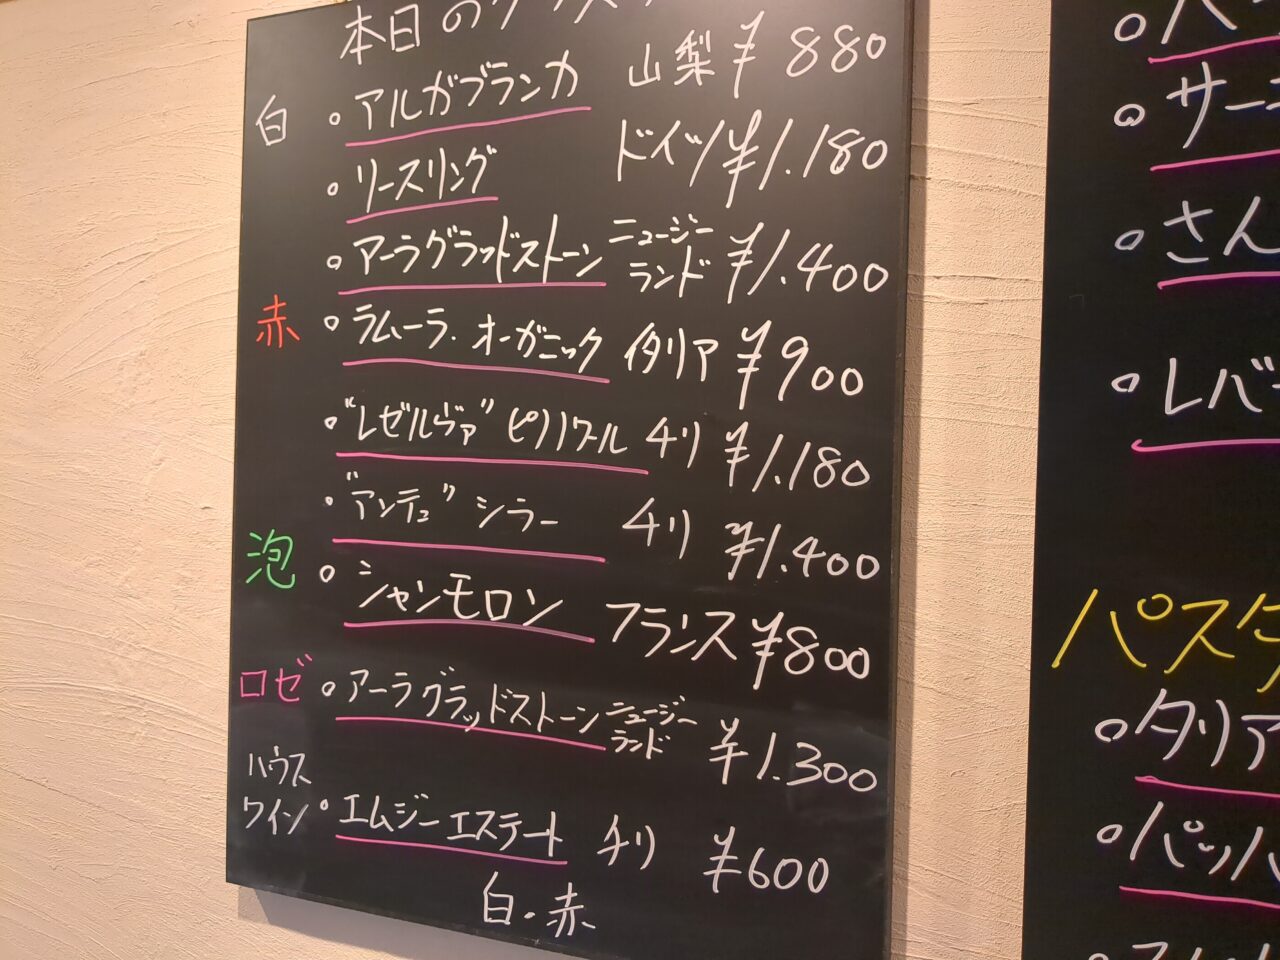 本日のグラス
白 ○アルガブランカ 山梨 ¥880
○リースリング ドイツ ¥1.180
○アーラグラッドストーン ニュージーランド ¥1.400
赤 ○ラムーラ・オーガニック イタリア ¥900
○"レゼルヴァ"ピノノワール チリ ¥1.180
○"アンテュ"シラー チリ ¥1.400
泡 ○シャンモロン フランス ¥800
ロゼ ○アーラグラッドストーン ニュージーランド ¥1.300
ハウスワイン ○エムジーエステート チリ ¥600
白・赤
○サー
○さん
○レバ
パスタ
○タリア
○パッパ